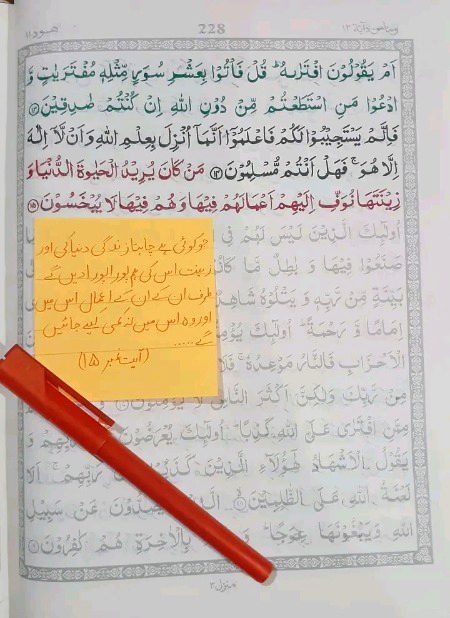 ومامن دآبة ١٢
228
هود ١١
اَمْ يَقُوْلُوْنَ افْتَرٰىهُ ؕ قُلْ فَاْتُوْا بِعَشْرِ سُوَرٍ مِّثْلِهٖ مُفْتَرَيٰتٍ وَّ
ادْعُوْا مَنِ اسْتَطَعْتُمْ مِّنْ دُوْنِ اللّٰهِ اِنْ كُنْتُمْ صٰدِقِيْنَ ۝۱۳
فَاِلَّمْ يَسْتَجِيْبُوْا لَكُمْ فَاعْلَمُوْۤا اَنَّمَاۤ اُنْزِلَ بِعِلْمِ اللّٰهِ وَاَنْ لَّاۤ اِلٰهَ
اِلَّا هُوَ ۚ فَهَلْ اَنْتُمْ مُّسْلِمُوْنَ ۝۱۴ مَنْ كَانَ يُرِيْدُ الْحَيٰوةَ الدُّنْيَا وَ
زِيْنَتَهَا نُوَفِّ اِلَيْهِمْ اَعْمَالَهُمْ فِيْهَا وَهُمْ فِيْهَا لَا يُبْخَسُوْنَ ۝۱۵
اُولٰٓئِكَ الَّذِيْنَ لَيْسَ لَهُمْ فِي
صَنَعُوْا فِيْهَا وَ بٰطِلٌ مَّا كَانُ
بَيِّنَةٍ مِّنْ رَّبِّهٖ وَ يَتْلُوْهُ شَاهِ
اِمَامًا وَّ رَحْمَةً ؕ اُولٰٓئِكَ يُؤْمِ
الْاَحْزَابِ فَالنَّارُ مَوْعِدُهٗ ۚ فَلَا
مِنْ رَّبِّكَ وَلٰكِنَّ اَكْثَرَ النَّاسِ لَا يُؤْمِنُوْنَ
مِمَّنِ افْتَرٰى عَلَى اللّٰهِ كَذِبًا ؕ اُولٰٓئِكَ يُعْرَضُوْنَ
يَقُوْلُ الْاَشْهَادُ هٰۤؤُلَآءِ الَّذِيْنَ كَذَبُوْا رَبِّهِمْ ۚ اَلَا
لَعْنَةُ اللّٰهِ عَلَى الظّٰلِمِيْنَ ۝۱۸ الَّذِ يَصُدُّوْنَ عَنْ سَبِيْلِ
اللّٰهِ وَيَبْغُوْنَهَا عِوَجًا ؕ وَ بِالْاٰخِرَةِ هُمْ كٰفِرُوْنَ ۝۱۹
منزل ۳
جو کوئی ہے چاہتا زندگی دنیا کی اور
زینت اس کی ہم پورا پورا دیں گے
طرف ان کے ان کے اعمال اس میں
اور وہ اس میں نہ کمی کیے جائیں
گے .....
(آیت نمبر ۱۵)